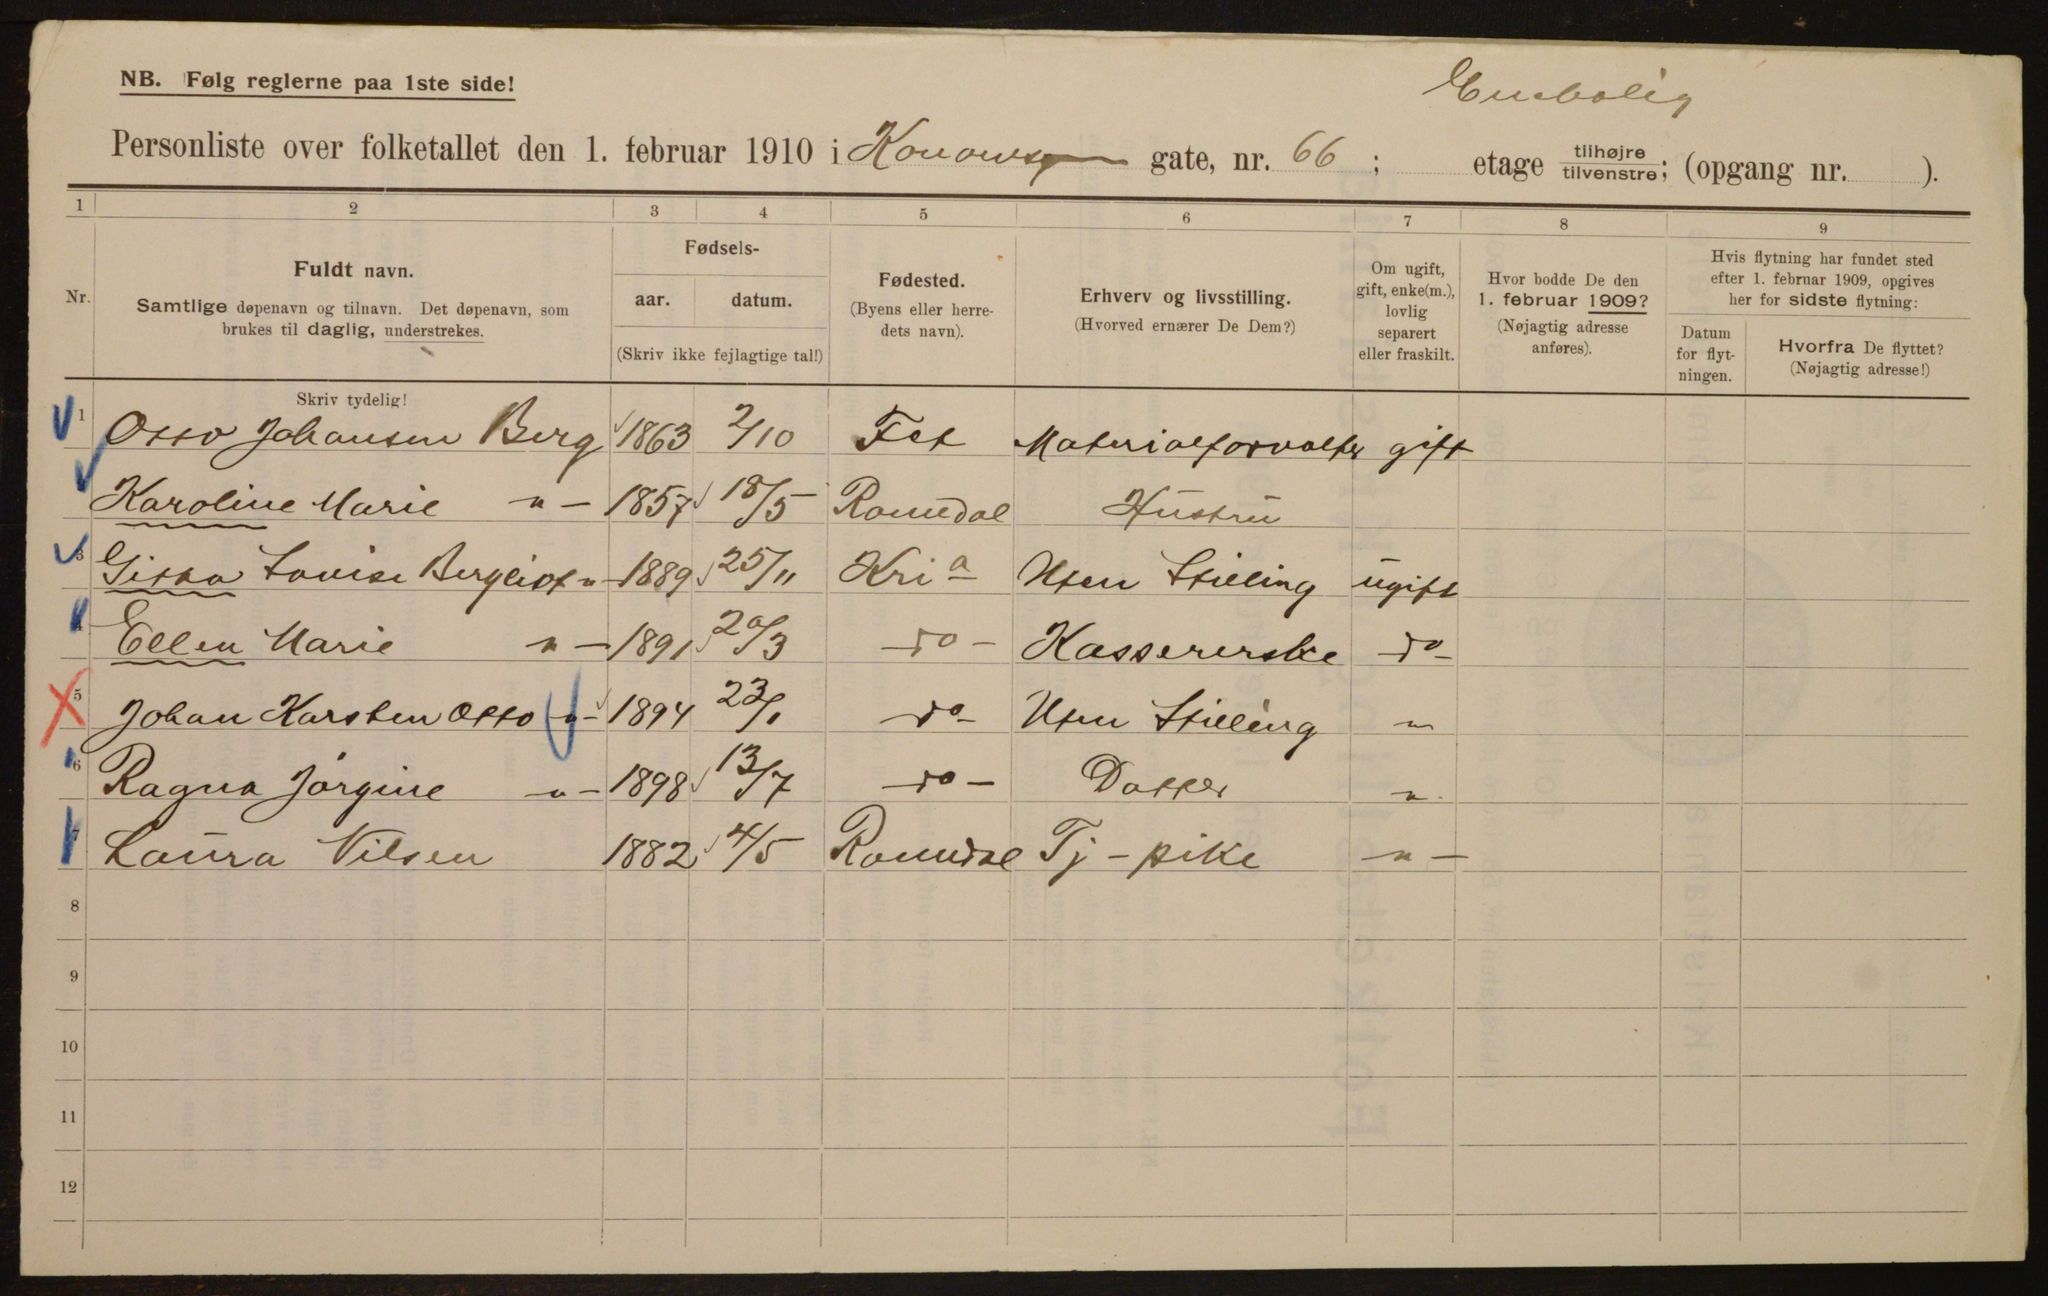 Enebolig
NB. Følg reglerne paa 1ste side!
Personliste over folketallet den 1. februar 1910 i Konowsg gate, nr. 66 ; etage tilhøjre/tilvenstre; (opgang nr. ).
1 2 3 4 5 6 7 8 9
Nr. Fuldt navn. Samtlige døpenavn og tilnavn. Det døpenavn, som brukes til daglig, understrekes.
Fødsels- aar. datum. (Skriv ikke fejlagtige tal!)
Fødested. (Byens eller herredets navn).
Erhverv og livsstilling. (Hvorved ernærer De Dem?)
Om ugift, gift, enke(m.), lovlig separert eller fraskilt.
Hvor bodde De den 1. februar 1909? (Nøjagtig adresse anføres).
Hvis flytning har fundet sted efter 1. februar 1909, opgives her for sidste flytning:
Datum for flytningen. Hvorfra De flyttet? (Nøjagtig adresse!)
Skriv tydelig!
1 Otto Johansen Berg 1863 2/10 Fet Materialforvalter gift
Karoline Marie " — 1857 18/5 Romedal Hustru
3 Gitta Lovise Bergliot " — 1889 25/11 Kria Uten Stilling ugift
4 Ellen Marie " — 1891 20/3 do — Kassererske do
5 Johan Karsten Otto " — 1894 23/1 do Uten Stilling "
6 Ragna Jørgine " — 1898 13/7 do — Datter "
7 Laura Nilsen 1882 4/5 Romedal Tj - pike " —
8
9
10
11
12